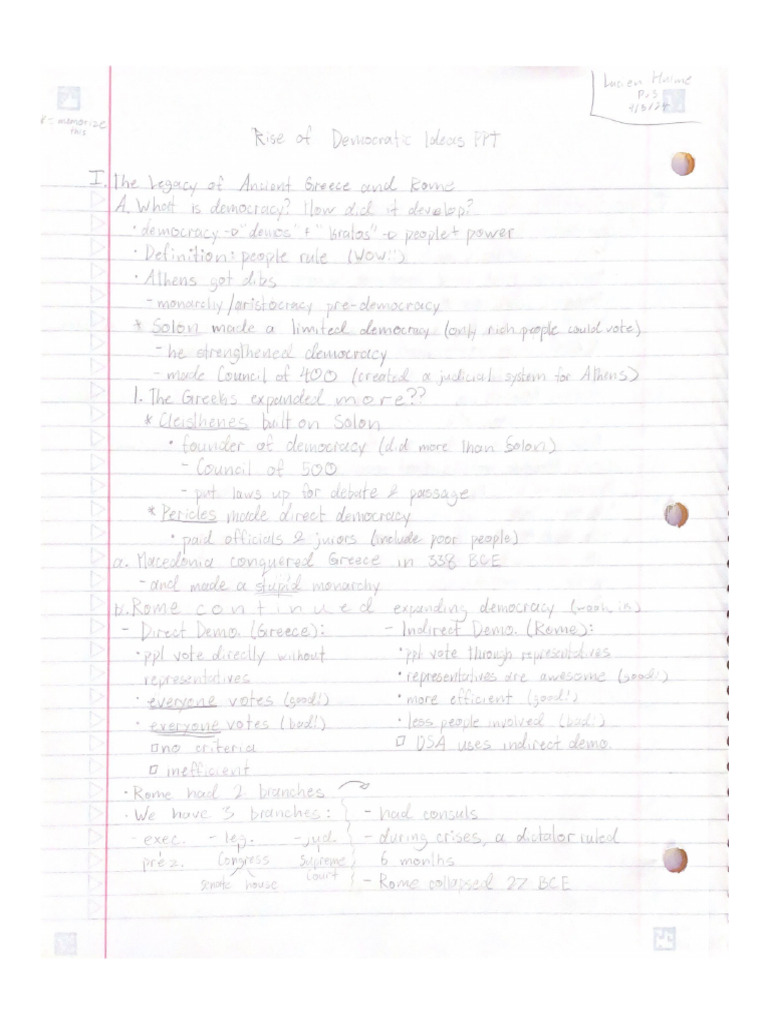 Lucien
P.3
* = memorize
this
Rise of Democratic Ideas PPT
I. The Legacy of Ancient Greece and Rome
A. What is democracy? How did it develop?
• democracy → "demos" + "kratos" → people + power
• Definition: people rule (WOW!!)
• Athens got dibs
- monarchy/aristocracy pre-democracy
* Solon made a limited democracy (only rich people could vote)
- he strengthened democracy
- made Council of 400 (created a judicial system for Athens)
1. The Greeks expanded more??
* Cleisthenes built on Solon
• founder of democracy (did more than Solon)
- Council of 500
- put laws up for debate & passage
* Pericles made direct democracy
• paid officials & jurors (include poor people)
a. Macedonia conquered Greece in 338 BCE
- and made a stupid monarchy
b. Rome continued expanding democracy
- Direct Demo. (Greece):
• ppl vote directly without
representatives
• everyone votes (good!)
• everyone votes (bad!)
□ no criteria
□ inefficient
- Indirect Demo. (Rome):
• ppl vote through representatives
• representatives are awesome (good!)
• more efficient (good!)
• less people involved (bad!)
□ USA uses indirect demo.
• Rome had 2 branches
• We have 3 branches:
- exec. - leg. - jud.
prez. Congress Supreme
Court
senate house
- had consuls
- during crises, a dictator ruled
6 months
- Rome collapsed 27 BCE